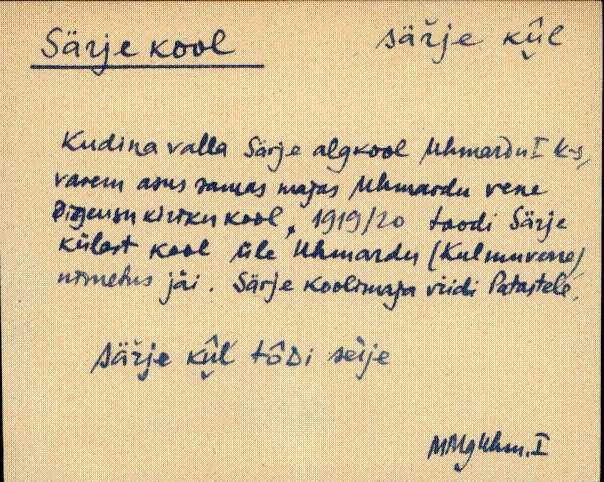 Särje kool
särje kûl
Kudina valla Särje algkool Uhmardu I k-s,
varem asus samas majas Uhmardu vene
õigeusu kiriku kool. 1919/20 toodi Särje
külast kool üle Uhmardu (Kulmuvene)
nimetus jäi. Särje koolimaja viidi Patastele.
särje kûl tôDi seije
MMg Uhm. I